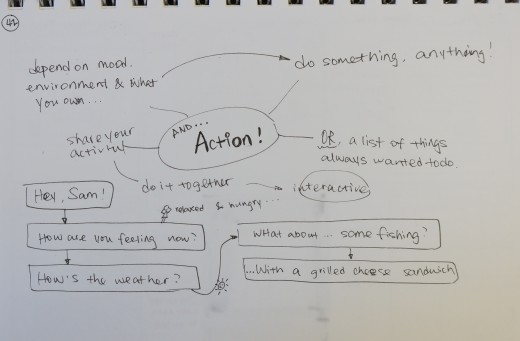 42
depend on mood.
environment & what
you own...
do something, anything!
AND...
Action!
share your
activity
OR, a list of things
always wanted to do.
do it together
interactive
Hey, Sam!
relaxed & hungry...
How are you feeling now?
What about... some fishing?
How's the weather?
...With a grilled cheese sandwich